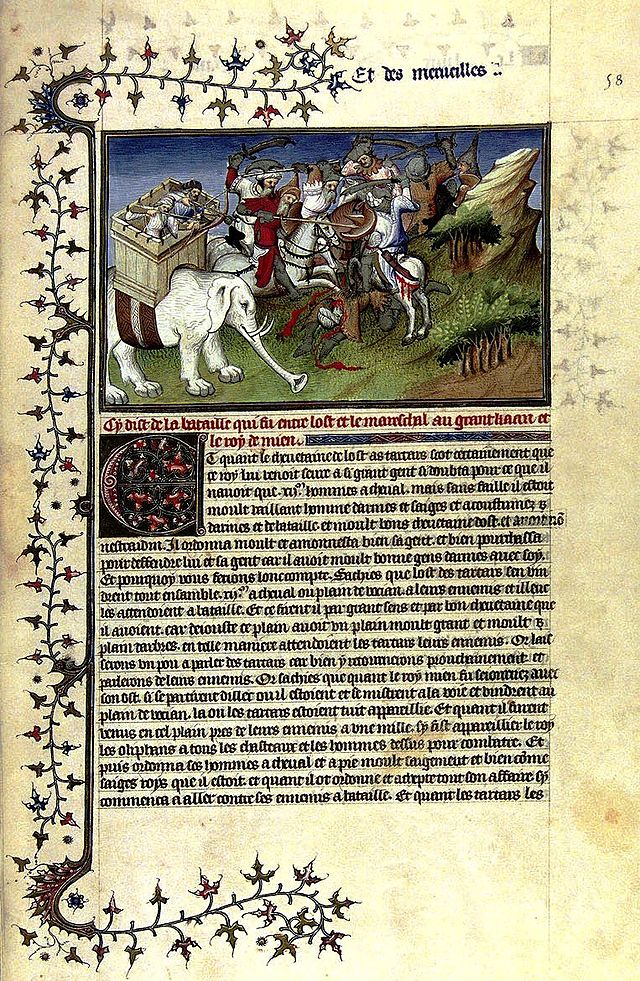 Et des merueilles
58
Cy dist de la bataille qui fu entre lost et le mareschal au grant kaan et
le roy de mien.
Et quant le cheuetaine de lost as tartars scot certainement que
ce roy lui venoit seure a si grant gent si doubta pour ce que il
nauoit que .xij.m hommes a cheual. mais sans faille il estoit
moult vaillant homme darmes et saiges et acoustumez
darmes et de bataille et moult bons cheuetaine dost. et auoit nō
nestradin. Il ordonna moult et amonnesta bien sa gent. et bien pourchassa
pour deffendre lui et sa gent car il auoit moult bonne gens darmes auec soy.
Et pourquoy vous feroiie lonc compte. Sachies que lost des tartars sen vin
drent tout ensamble .xij.m a cheual ou plain de vocian. a leurs ennemis et illeuc
les attendoient a bataille. Et ce firent il par grant sens et par bon cheuetaine que
il auoient. car deiouste ce plain auoit vn plain moult grant et moult
plain darbres. en telle maniere attendoient les tartars leurs ennemis. Or lais
serons vn pou a parler des tartars car bien y retournerons prouchainement et
parlerons de leurs ennemis. Or sachies que quant le roy mien fu seiournez auec
son ost. si se partirent dillec ou il estoient et se mistrent a la voie et vindrent au
plain de vocian. la ou les tartars estoient tuit appareillie. Et quant il furent
venus en cel plain pres de leurs ennemis a vne mille. sy fist appareillier le roy
les oliphans a tous les chasteaux et les hommes dessus pour combatre. Et
puis ordonna ses hommes a cheual et a pie moult saigement et bien cōme
saiges roys que il estoit. et quant il ot ordonne et adrepte tout son affaire sy
commenca a aller contre ses ennemis a bataille. Et quant les tartars les